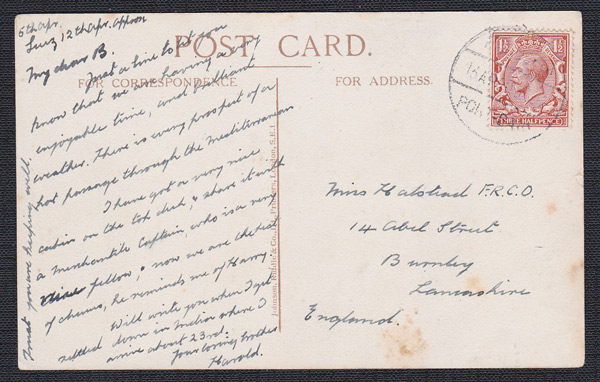 5th Apr.
Suez 12th Apr. approx
POST CARD.
My dear B.
FOR CORRESPONDENCE
FOR ADDRESS.
Just a line to let you
know that we are having a very
enjoyable time, and brilliant
weather. There is every prospect of a
hot passage through the Mediterranean
I have got a very nice
cabin on the top deck, & share it with
a mercantile Captain, who is a very
fellow, & now we are the
of chums, he reminds me of Harry.
Will write you when I get
settled down in India where I
arrive about 23rd.
Your loving brother
Harold.
Trust you are keeping well.
Johnson, Riddle & Co., Ltd., Printers, London, S.E.1.
1½ 1½
THREE HALFPENCE
Miss Halstead F.R.C.O.
14 Abel Street
Burnley
Lancashire
England.